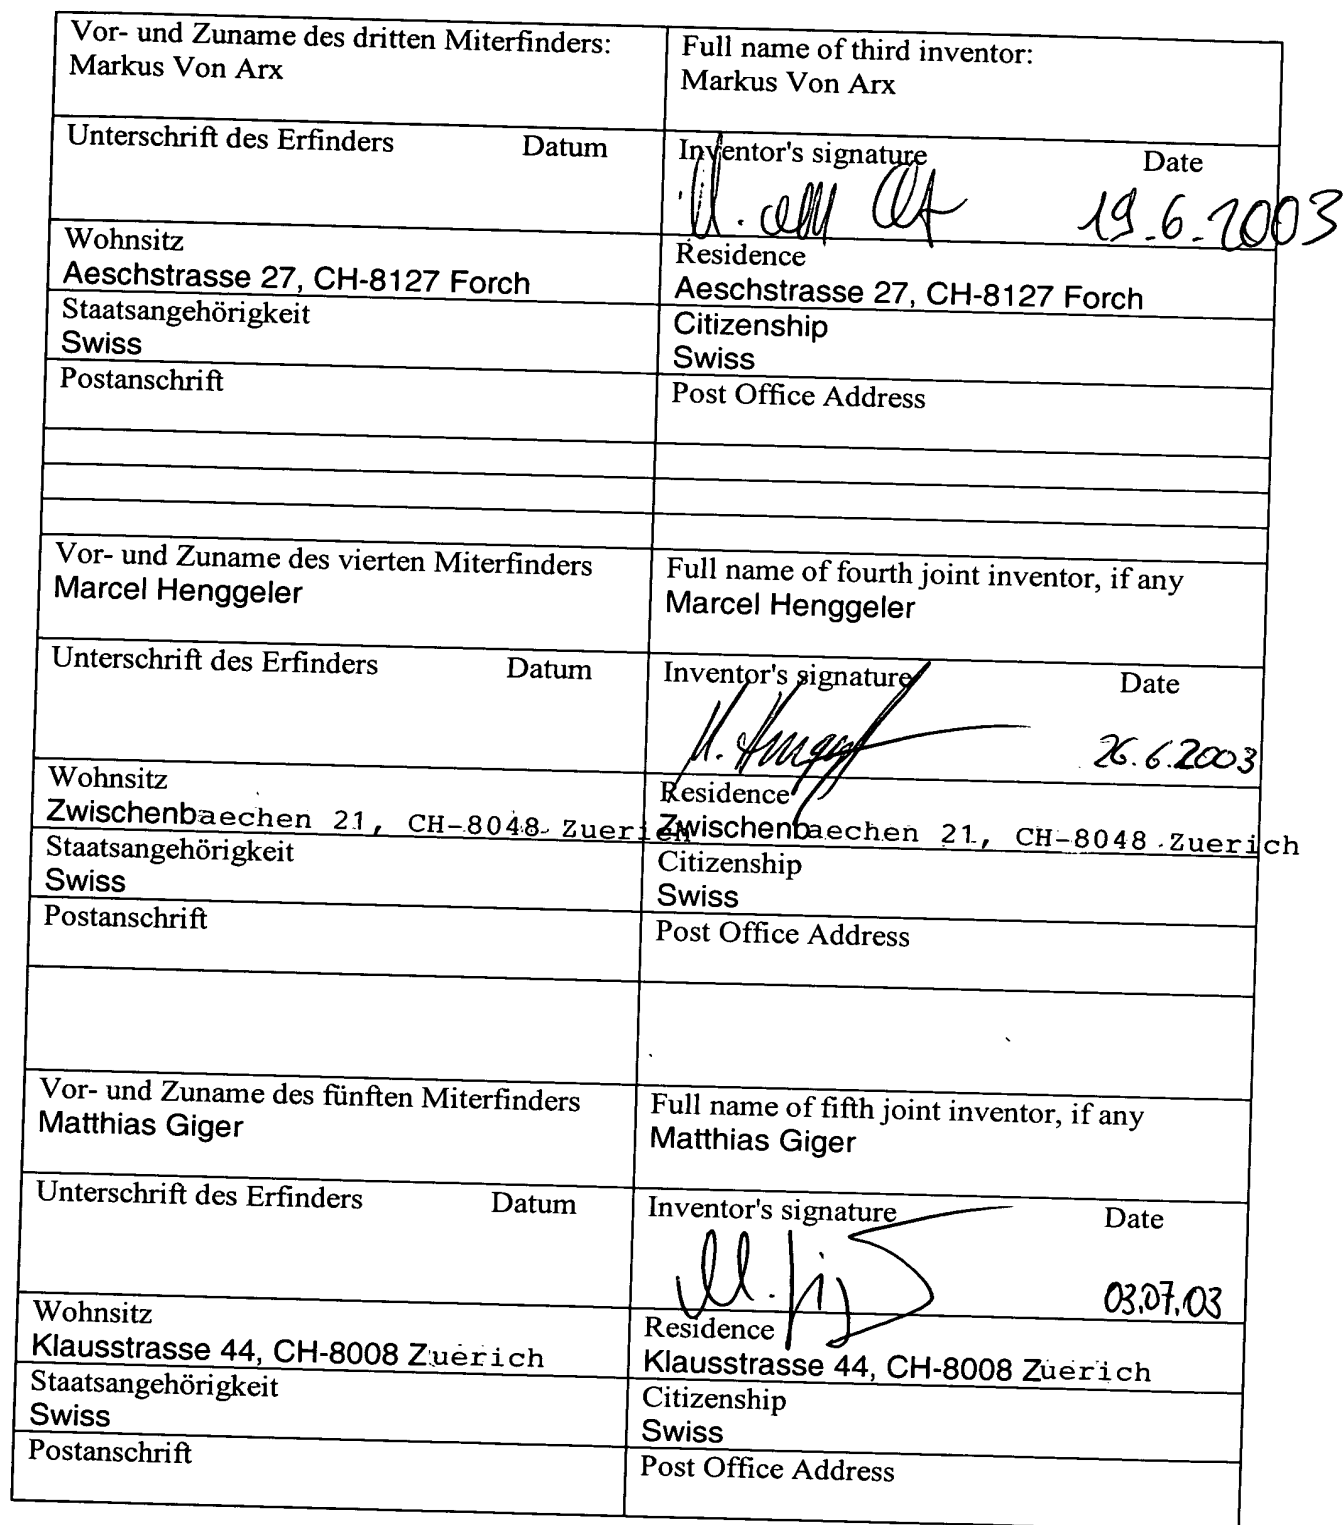 Vor- und Zuname des dritten Miterfinders:
Markus Von Arx
Full name of third inventor:
Markus Von Arx
Unterschrift des Erfinders Datum
Inventor's signature Date
19.6.2003
Wohnsitz
Aeschstrasse 27, CH-8127 Forch
Residence
Aeschstrasse 27, CH-8127 Forch
Staatsangehörigkeit
Swiss
Citizenship
Swiss
Postanschrift
Post Office Address
Vor- und Zuname des vierten Miterfinders
Marcel Henggeler
Full name of fourth joint inventor, if any
Marcel Henggeler
Unterschrift des Erfinders Datum
Inventor's signature Date
26.6.2003
Wohnsitz
Zwischenbaechen 21, CH-8048 Zuerich
Residence
Zwischenbaechen 21, CH-8048 Zuerich
Staatsangehörigkeit
Swiss
Citizenship
Swiss
Postanschrift
Post Office Address
Vor- und Zuname des fünften Miterfinders
Matthias Giger
Full name of fifth joint inventor, if any
Matthias Giger
Unterschrift des Erfinders Datum
Inventor's signature Date
03.07.03
Wohnsitz
Klausstrasse 44, CH-8008 Zuerich
Residence
Klausstrasse 44, CH-8008 Zuerich
Staatsangehörigkeit
Swiss
Citizenship
Swiss
Postanschrift
Post Office Address